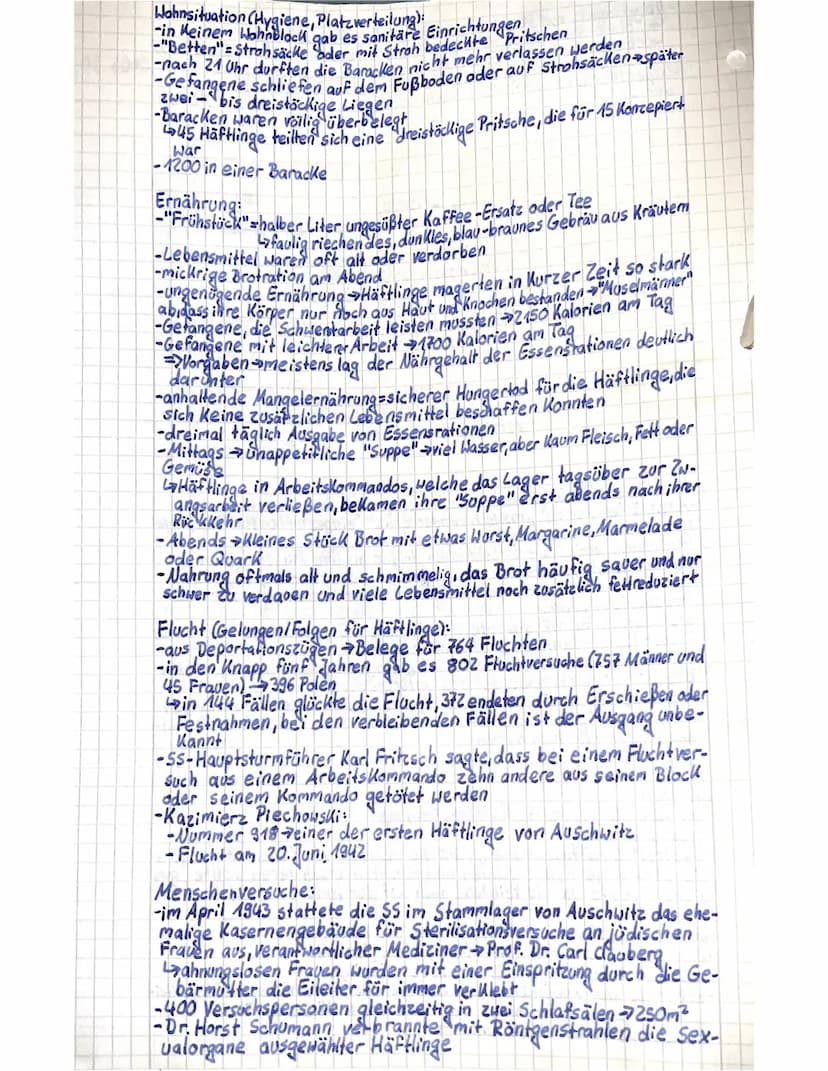 Wohnsituation (Hygiene, Platzverteilung):
-in keinem Wohnblock gab es sanitäre Einrichtungen
-"Betten"=Strohsäcke oder mit Stroh bedeckte Pritschen
-nach 21 Uhr durften die Baracken nicht mehr verlassen werden
-Gefangene schliefen auf dem Fußboden oder auf Strohsäcken→später
zwei- bis dreistöckige Liegen
-Baracken waren völlig überbelegt
↳45 Häftlinge teilten sich eine dreistöckige Pritsche, die für 15 konzepiert
war
-1200 in einer Baracke
Ernährung:
-"Frühstück"=halber Liter ungesüßter Kaffee-Ersatz oder Tee
↳faulig riechendes, dunkles, blau-braunes Gebräu aus Kräutern
-Lebensmittel waren oft alt oder verdorben
-mickrige Brotration am Abend
-ungenügende Ernährung→Häftlinge magerten in kurzer Zeit so stark
ab, dass ihre Körper nur noch aus Haut und Knochen bestanden→"Muselmänner"
-Gefangene, die Schwerstarbeit leisten mussten→2150 Kalorien am Tag
-Gefangene mit leichterer Arbeit→1700 Kalorien am Tag
⇒Vorgaben→meistens lag der Nährgehalt der Essensrationen deutlich
darunter
-anhaltende Mangelernährung=sicherer Hungertod für die Häftlinge, die
sich keine zusätzlichen Lebensmittel beschaffen konnten
-dreimal täglich Ausgabe von Essensrationen
-Mittags→unappetitliche "Suppe"→viel Wasser, aber kaum Fleisch, Fett oder
Gemüse
↳Häftlinge in Arbeitskommandos, welche das Lager tagsüber zur Zw-
angsarbeit verließen, bekamen ihre "Suppe" erst abends nach ihrer
Rückkehr
-Abends→kleines Stück Brot mit etwas Wurst, Margarine, Marmelade
oder Quark
-Nahrung oftmals alt und schmimmelig, das Brot häufig sauer und nur
schwer zu verdauen und viele Lebensmittel noch zusätzlich fettreduziert
Flucht (Gelungen/Folgen für Häftlinge):
-aus Deportationszügen→Belege für 764 Fluchten
-in den knapp fünf Jahren gab es 802 Fluchtversuche (757 Männer und
45 Frauen)→396 Polen
↳in 144 Fällen glückte die Flucht, 372 endeten durch Erschießen oder
Festnahmen, bei den verbleibenden Fällen ist der Ausgang unbe-
kannt
-SS-Hauptsturmführer Karl Fritzsch sagte, dass bei einem Fluchtver-
such aus einem Arbeitskommando zehn andere aus seinem Block
oder seinem Kommando getötet werden
-Kazimierz Piechowski:
-Nummer 918→einer der ersten Häftlinge von Auschwitz
-Flucht am 20. Juni 1942
Menschenversuche:
-im April 1943 stattete die SS im Stammlager von Auschwitz das ehe-
malige Kasernengebäude für Sterilisationsversuche an jüdischen
Frauen aus, verantwortlicher Mediziner→Prof. Dr. Carl Clauberg
↳ahnungslosen Frauen wurden mit einer Einspritzung durch die Ge-
bärmutter die Eileiter für immer verklebt
-400 Versuchspersonen gleichzeitig in zwei Schlafsälen→250m²
-Dr. Horst Schumann verbrannte mit Röntgenstrahlen die Sex-
ualorgane ausgewählter Häftlinge